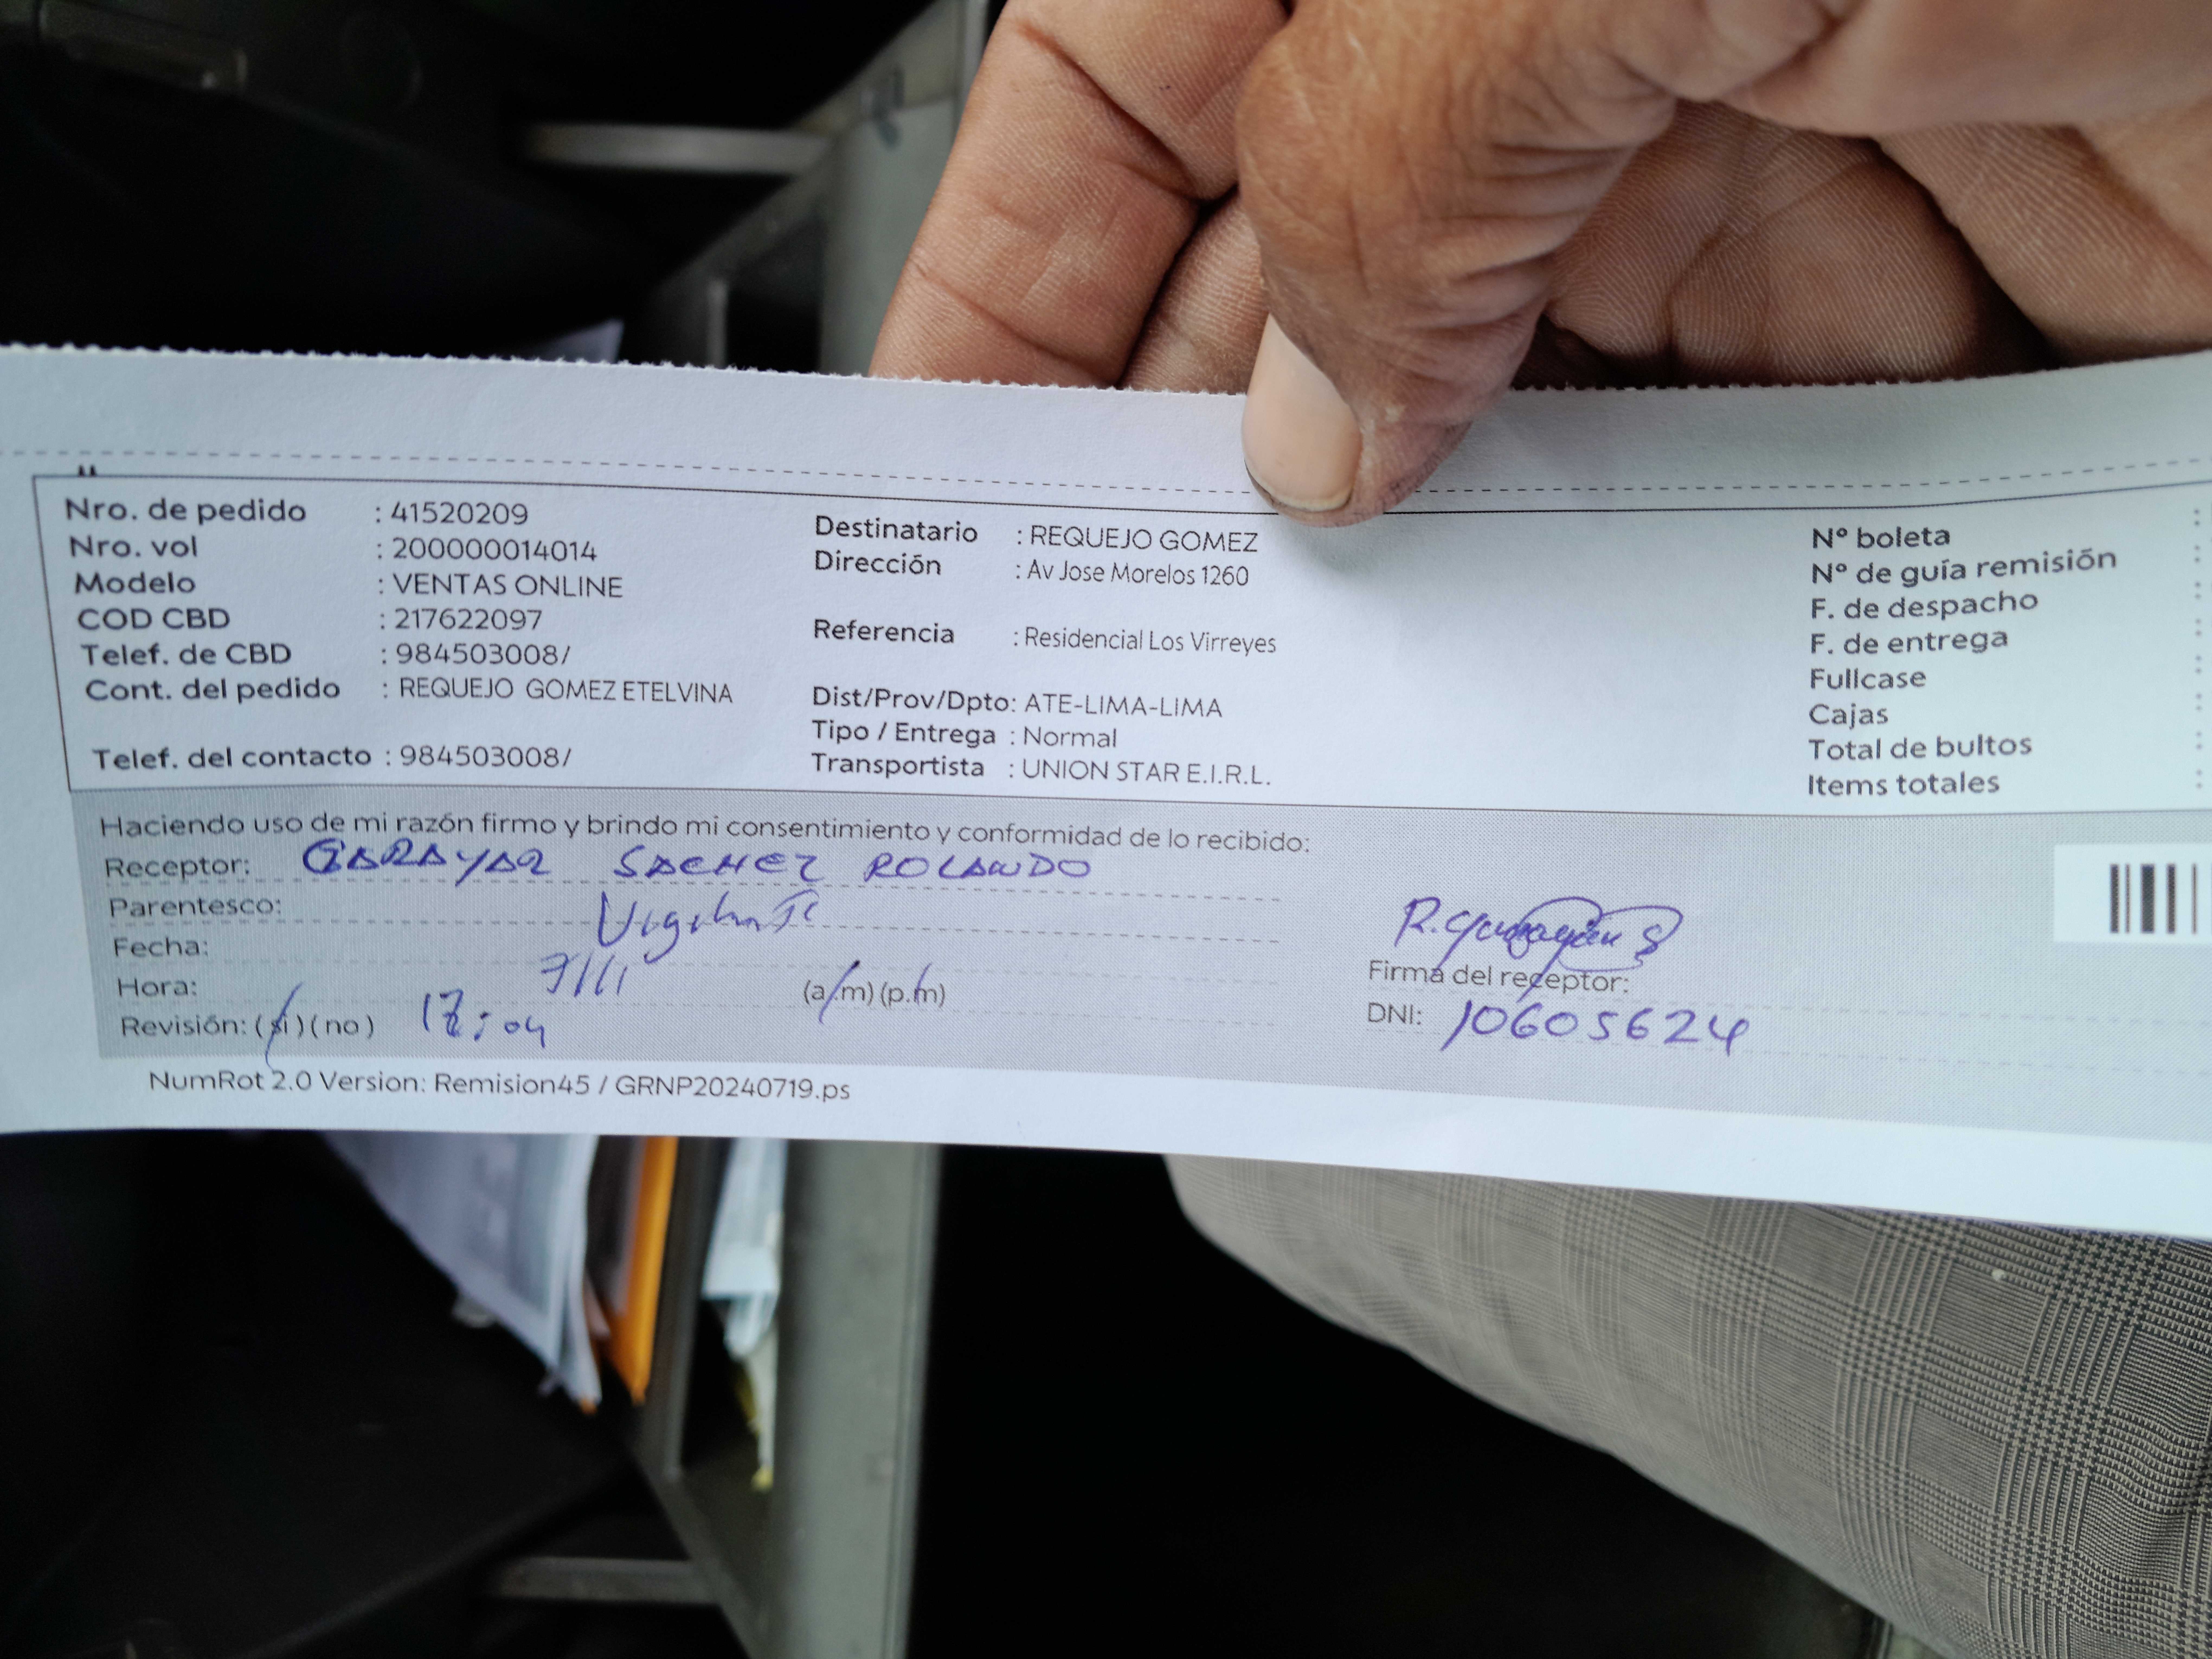 Nro. de pedido : 41520209
Nro. vol : 200000014014
Modelo : VENTAS ONLINE
COD CBD : 217622097
Telef. de CBD : 984503008/
Cont. del pedido : REQUEJO GOMEZ ETELVINA
Telef. del contacto : 984503008/
Destinatario : REQUEJO GOMEZ
Dirección : Av Jose Morelos 1260
Referencia : Residencial Los Virreyes
Dist/Prov/Dpto: ATE-LIMA-LIMA
Tipo / Entrega : Normal
Transportista : UNION STAR E.I.R.L.
Nº boleta :
Nº de guía remisión :
F. de despacho :
F. de entrega :
Fullcase :
Cajas :
Total de bultos :
Items totales :
Haciendo uso de mi razón firmo y brindo mi consentimiento y conformidad de lo recibido:
Receptor: GARAYAR SACHEZ ROLANDO
Parentesco: Vigilante
Fecha: 7/11
Hora: (a.m) (p.m)
Revisión: (si) (no) 12:04
Firma del receptor:
DNI: 10605624
NumRot 2.0 Version: Remision45 / GRNP20240719.ps